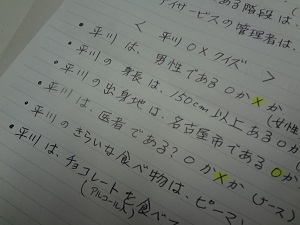 ある階段は、
デイサービスの管理者は、
< 平川 O×クイズ >
• 平川は、男性である O か × か
• 平川の身長は、150cm以上ある O か (女性
• 平川の出身地は、名古屋市である O か
• 平川は、医者である? O か × か (ナース)
• 平川のきらいな食べ物は、ピーマン
• 平川は、チョコレートを食べ
(アルコール入)